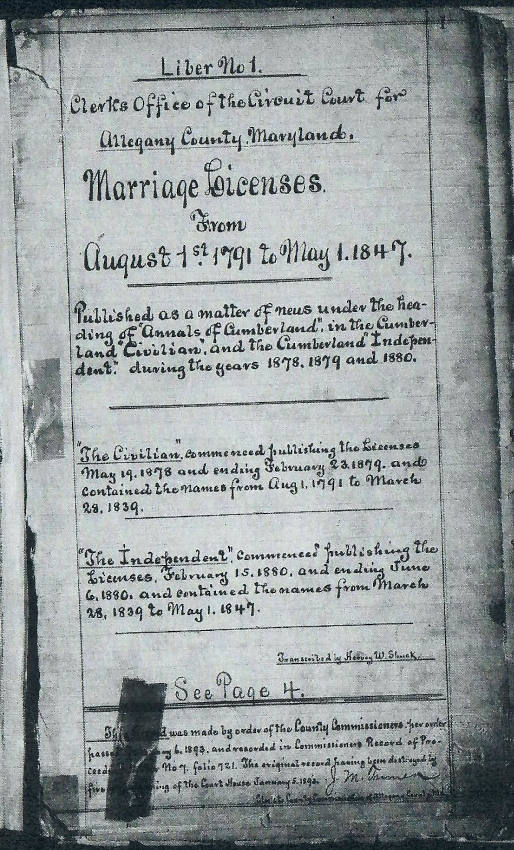 Liber No 1.
Clerks Office of the Circuit Court for
Allegany County, Maryland.
Marriage Licenses.
From
August 1st 1791 to May 1. 1847.
Published as a matter of news under the hea-
ding of "Annals of Cumberland", in the Cumber-
land "Civilian", and the Cumberland "Indepen-
dent." during the years 1878, 1879 and 1880.
"The Civilian", commenced publishing the Licenses
May 19. 1878 and ending February 23. 1879. and
contained the names from Aug 1. 1791 to March
28, 1839.
"The Independent", commenced publishing the
Licenses, February 15. 1880. and ending June
6. 1880. and contained the names from March
28, 1839 to May 1. 1847.
Transcribed by Hervey W. Shuck.
See Page 4.
was made by order of the County Commissioners, per order
6. 1893, and recorded in Commissioners Record of Pro-
No 7. folio 721. The original record having been destroyed by
of the Court House January 5. 1893. J. M.
Clerk to County Commissioners of Allegany County, Md.